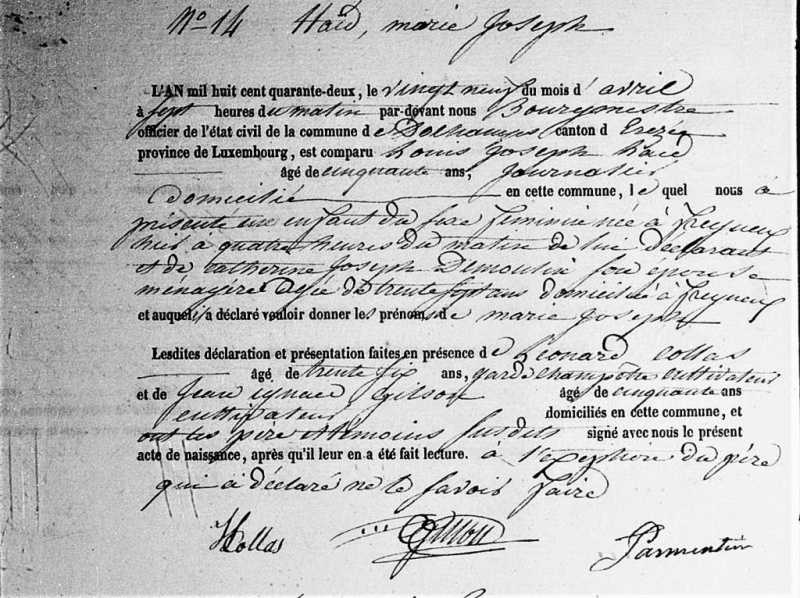 No 14 Haid, marie Joseph
L'AN mil huit cent quarante-deux, le vingt neuf du mois d'avril
à sept heures du matin par-devant nous Bourgmestre
officier de l'état civil de la commune de canton d Erezée
province de Luxembourg, est comparu Louis Joseph haid
âgé de cinquante ans, Journalier
Domicilié en cette commune, le quel nous a
présenté un enfant du sexe feminin née à freyneux
hier a quatre heures du matin de lui déclarant
et de catherine Joseph Demoulin son epouse
ménagère agée de trente sept ans domiciliée à freyneux
et auquel il a déclaré vouloir donner les prénoms de marie Joseph
Lesdites déclaration et présentation faites en présence de Leonard collas
âgé de trente six ans, garde champêtre cultivateur
et de jean ignace Gilson âgé de cinquante ans
cultivateur domiciliés en cette commune, et
ont les père et témoins susdits signé avec nous le présent
acte de naissance, après qu'il leur en a été fait lecture. à l'exephion du père
qui à déclaré ne le savoir faire
Collas Gilson Parmentier